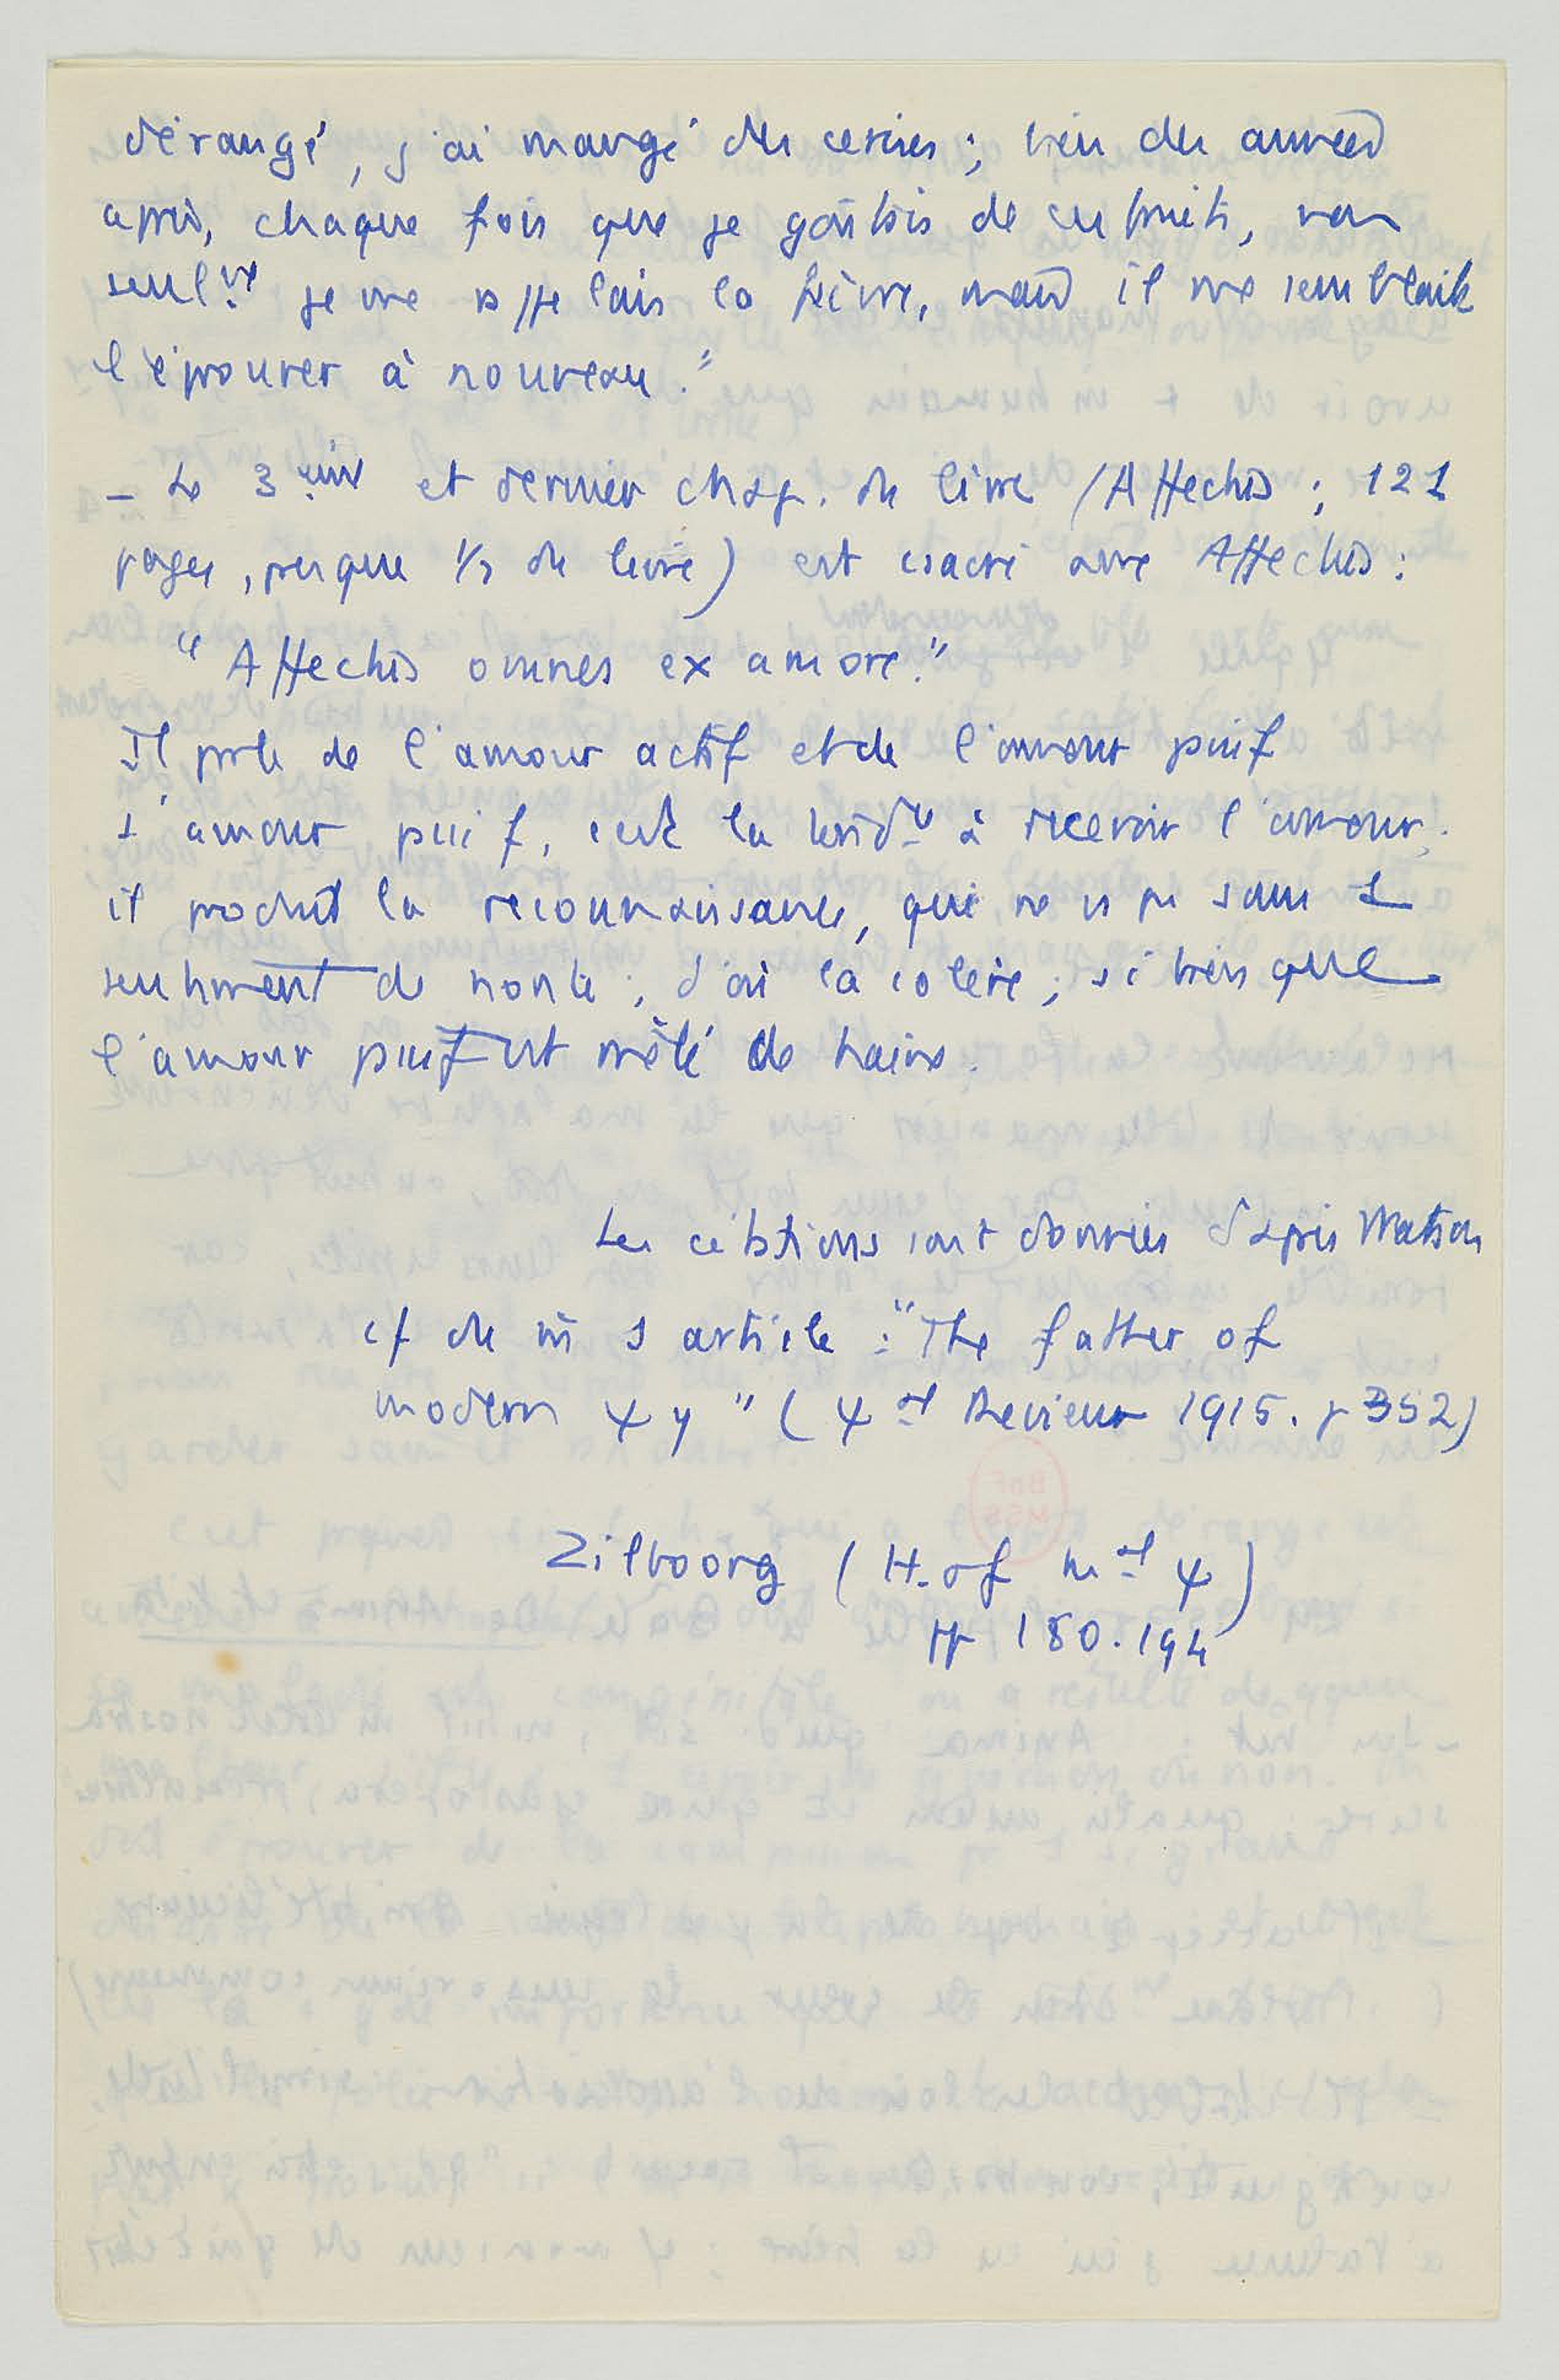 dérangé, j'ai mangé des cerises ; bien des années
après, chaque fois que je goûtais de ces fruits, non
seulmt je me rappelais la fièvre, mais il me semblait
l'éprouver à nouveau."
– Le 3eme et dernier chap. du livre (Affectus ; 121
pages, presque 1/2 du livre) est csacré aux Affectus :
"Affectus omnes ex amore."
Il parle de l'amour actif et de l'amour passif
L'amour passif, c'est la tendce à recevoir l'amour.
il produit la reconnaissance, qui ne va pas sans 1
sentiment de honte ; d'où la colère ; si bien que
l'amour passif est mêlé de haine.
Les citations sont données d'après Watson
cf du m̄ 1 article : "The father of
modern ψy" (ψal Review 1915. p 352)
Zilboorg (H. of mal ψ)
pp 180.194
BnF
MSS